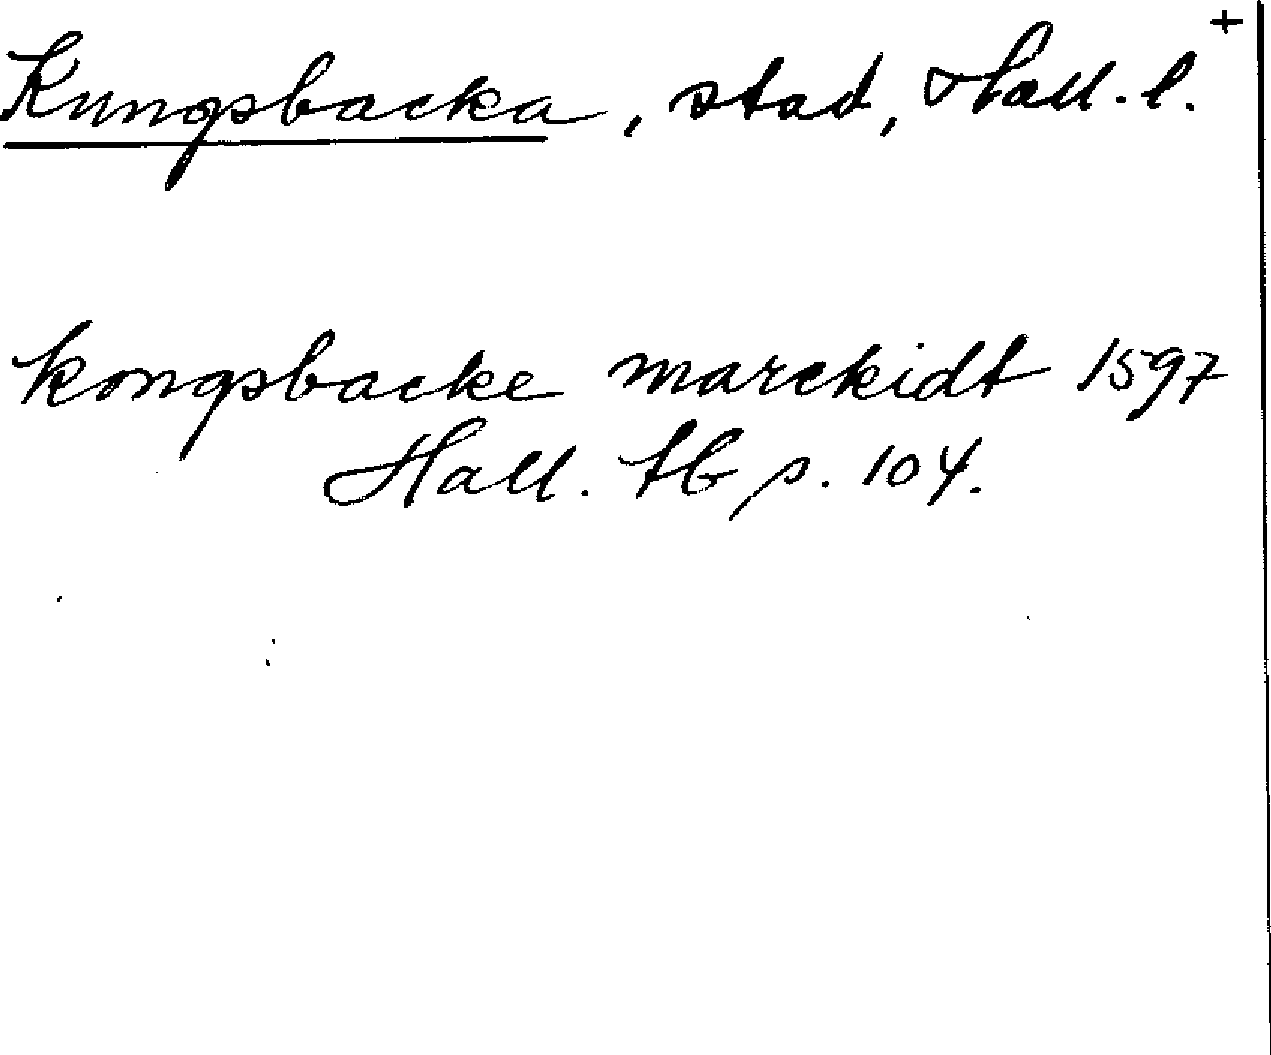 Kungsbacka, stad, Hall. l. +
kongsbacke marckidt 1597
Hall. tb p. 104.